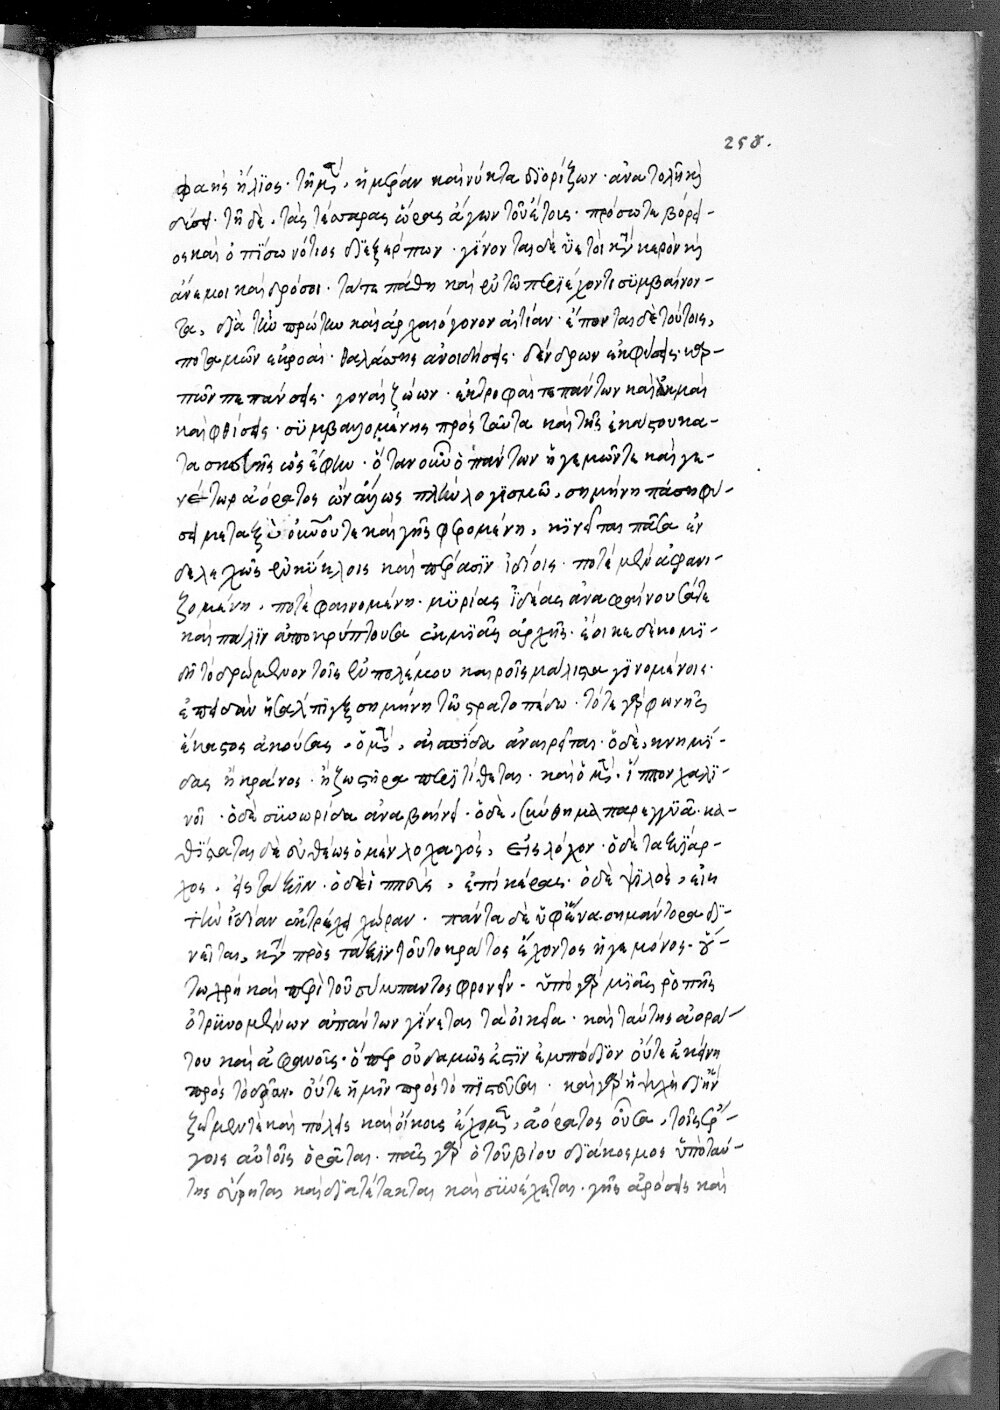 258.
φαὴς ἥλιος· τῇ μὲν, ἡμέραν καὶ νύκτα διορίζων· ἀνατολῇ κỳ
δύσει· τῇ δὲ, τὰς τέσσαρας ὥρας ἄγων τοῦ ἔτους· πρόσω τε βόρει-
ος καὶ ὀπίσω νότιος διεξέρπων· γίνονται δὲ ὑετοὶ κατὰ καιρὸν κỳ
ἄνεμοι καὶ δρόσοι· τά τε πάθη καὶ ἐν τῷ περιέχοντι συμβαίνον-
τα, διὰ τὴν πρώτην καὶ ἀρχαιόγονον αἰτίαν· ἕπονται δὲ τούτοις,
ποταμῶν ἐκροαί· θαλάσσης ἀνοιδήσεις· δένδρων ἐκφύσεις· καρ-
πῶν πεπάνσεις· γοναὶ ζώων· ἐκτροφαί τε πάντων καὶ ἀκμαὶ
καὶ φθίσεις· συμβαλλομένης πρὸς ταῦτα καὶ τῆς ἑκάστου κα-
τασκευῆς ὡς ἔφην· ὅταν οὖν ὁ πάντων ἡγεμών τε καὶ γε-
νέτωρ ἀόρατος ὢν ἄλλως πλὴν λογισμῷ, σημήνῃ πάσῃ φύ-
σει μεταξὺ οὐνοῦ τε καὶ γῆς φερομένῃ, κινεῖται πᾶσα ἐν
δελεχῶς ἐν κύκλοις καὶ πέρασιν ἰδίοις· ποτὲ μὲν ἀφανι-
ζομένη, ποτὲ φαινομένη· μυρίας ἰδέας ἀναφαίνουσά τε
καὶ πάλιν ἀποκρύπτουσα ἐκ μιᾶς ἀρχῆς· ἔοικε δὲ κομι-
δῇ τὸ δρώμενον τοῖς ἐν πολέμου καιροῖς μάλιστα γινομένοις·
ἐπειδὰν ἡ σάλπιγξ σημήνῃ τῷ στρατοπέδῳ· τότε γὰρ φωνῆς
ἕκαστος ἀκούσας, ὁ μὲν, ἀσπίδα ἀναιρεῖται· ὁ δὲ, κνημῖ-
δας ἢ κράνος· ἢ ζωστῆρα περιτίθεται· καὶ ὁ μὲν, ἵππον χαλι-
νοῖ· ὁ δὲ συνωρίδα ἀναβαίνει· ὁ δὲ, ξύνθημα παρεγγυᾷ· κα-
θίσαται δὲ εὐθέως ὁ μὲν λοχαγὸς, εἰς λόχον· ὁ δὲ ταξίαρ-
χος, εἰς τάξιν· ὁ δὲ ἱππεὺς, ἐπὶ κέρας· ὁ δὲ ψιλὸς, εἰς
τὴν ἰδίαν ἐκτρέχει χώραν· πάντα δὲ ὑφ' ἕνα σημάντορα δι-
νεῖται, κατὰ πρὸς τάξιν τοῦ τὸ κράτος ἔχοντος ἡγεμόνος· οὕ-
τω χρὴ καὶ περὶ τοῦ σύμπαντος φρονεῖν· ὑπὸ γὰρ μιᾶς ῥοπῆς
ὀτρυνομένων ἁπάντων γίνεται τὰ οἰκεῖα· καὶ ταύτης ἀορά-
του καὶ ἀφανοῦς· ὅπερ οὐδαμῶς ἐστιν ἐμπόδιον οὔτε ἐκείνῃ
πρὸς τὸ δρᾶν· οὔτε ἡμῖν πρὸς τὸ πιστεῦσαι· καὶ γὰρ ἡ ψυχὴ δι' ἣν
ζῶμέν τε καὶ πόλεις καὶ οἴκους ἔχομεν, ἀόρατος οὖσα, τοῖς ἔρ-
γοις αὐτοῖς ὁρᾶται· πᾶς γὰρ ὁ τοῦ βίου διάκοσμος ὑπὸ ταύ-
της εὕρηται καὶ διατέτακται καὶ συνέχεται· γῆς ἀρόσεις καὶ